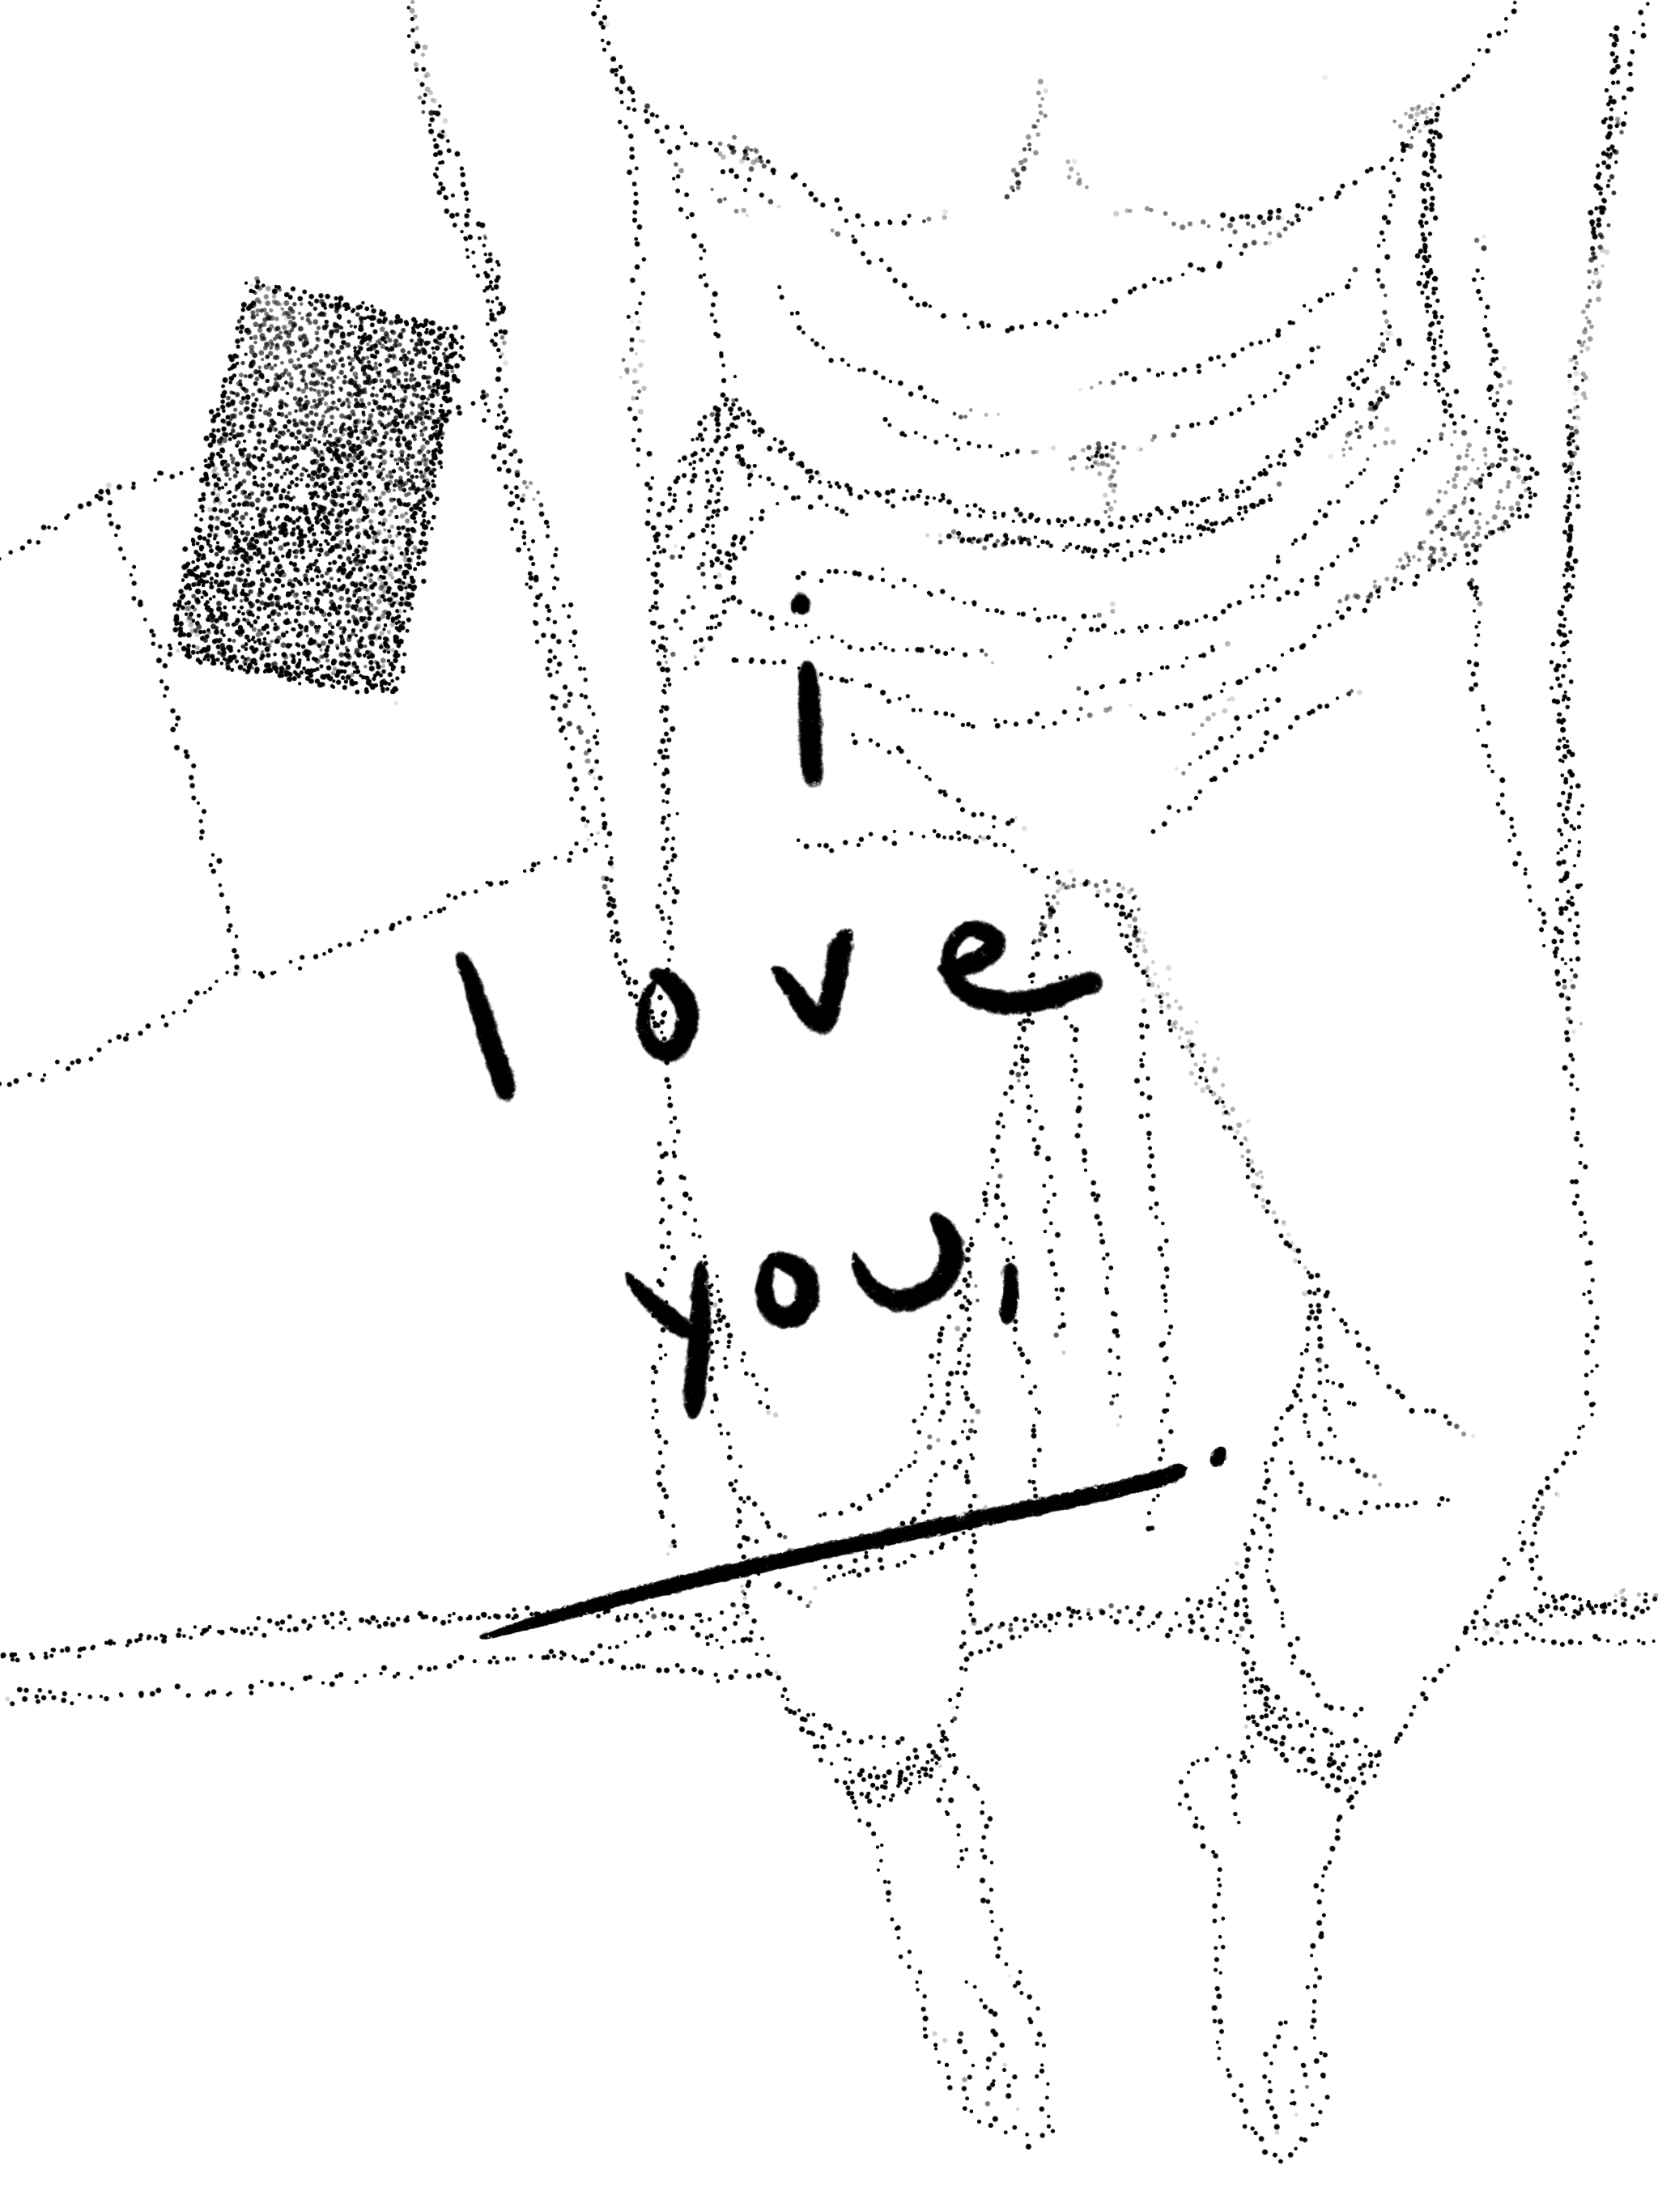 i
love
you,